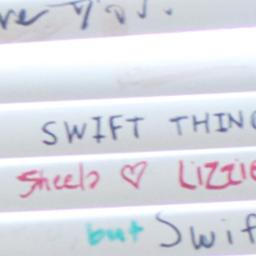 SWIFT THING
Sheels ♡ Lizzie
but Swif